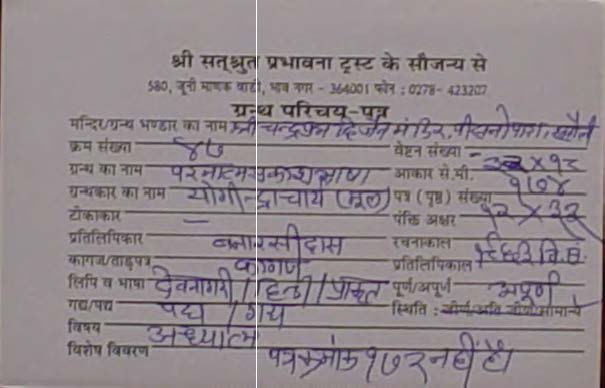 श्री सत्श्रुत प्रभावना ट्रस्ट के सौजन्य से
580, जूनी माणक वाडी, भाव नगर - 364001 फोन : 0278- 423207
ग्रन्थ परिचय-पत्र
मन्दिर/ग्रन्थ भण्डार का नाम श्री चन्द्रप्रभ दि. जैन मंदिर,
क्रम संख्या ४७ वेष्टन संख्या -
ग्रन्थ का नाम परमात्मप्रकाश भाषा आकार से.मी. ३२ X १८
ग्रन्थकार का नाम योगीन्द्राचार्य (मूल) पत्र (पृष्ठ) संख्या १७४
टीकाकार — पंक्ति अक्षर १२ X ३२
प्रतिलिपिकार बनारसीदास रचनाकाल
कागज/ताड़पत्र कागज प्रतिलिपिकाल वि.सं.
लिपि व भाषा देवनागरी / हिन्दी / प्राकृत पूर्ण/अपूर्ण अपूर्ण
गद्य/पद्य पद्य / गद्य स्थिति : जीर्ण/अति जीर्ण/सामान्य
विषय अध्यात्म
विशेष विवरण पत्र क्रमांक १७२ नहीं है।